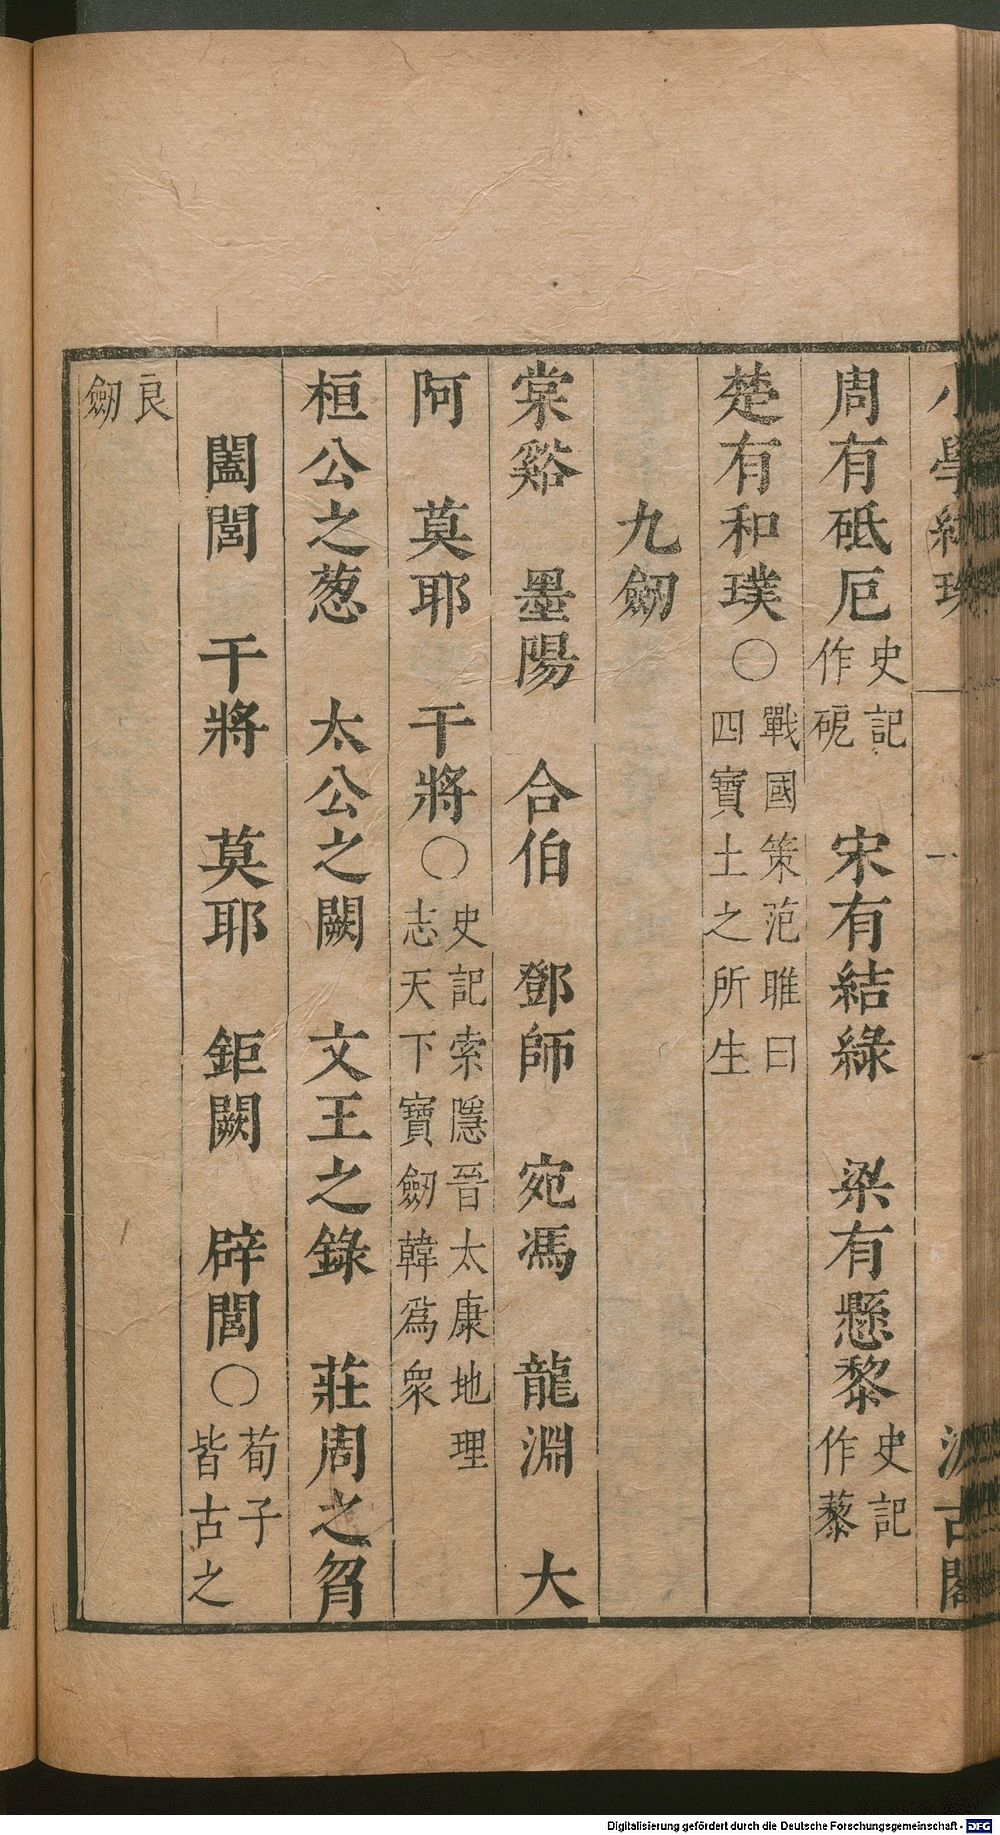 周有砥厄史記作砨 宋有結綠 梁有懸黎史記作藜
楚有和璞〇戰國策范雎曰四寶土之所生
九劒
棠谿 墨陽 合伯 鄧師 宛馮 龍淵 大
阿 莫耶 干將〇史記索隱晉太康地理志天下寶劒韓爲衆
桓公之葱 太公之闕 文王之錄 莊周之曶
闔閭 干將 莫耶 鉅闕 辟閭〇荀子皆古之
良劒
Digitalisierung gefördert durch die Deutsche Forschungsgemeinschaft - DFG